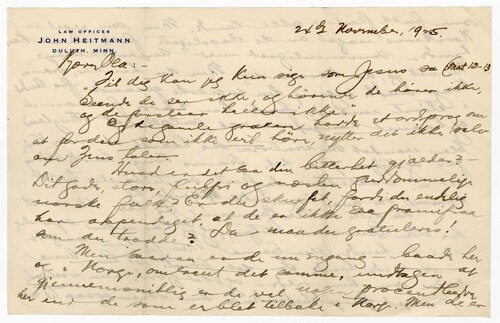 LAW OFFICES
JOHN HEITMANN
DULUTH, MINN.
24 November, 1925.
Kjære Ola:-
Til dig kan jeg kun sige som Jesus sa (Mat 13-13
"Seende de ser ikke, og hørende de hører ikke,
og de forstaar heller ikke".
Og de gamle grækere havde et ordsprog om
at for den som ikke vil høre, nytter det ikke selv
om Zeus taler.
Hvad er det saa den bitterhet gjælder?
Dit gode, store, og
norske Er du skuffet, fordi du endelig
har opdaget, at de er ikke saa
som du trodde? Da maa du gratuleres!
Men saadan er du engang - baade her
og i Norge, omtrent det samme, undtagen at
gjennemsnitlig er de vel
her end de som er blet tilbake i Norge. Men de er